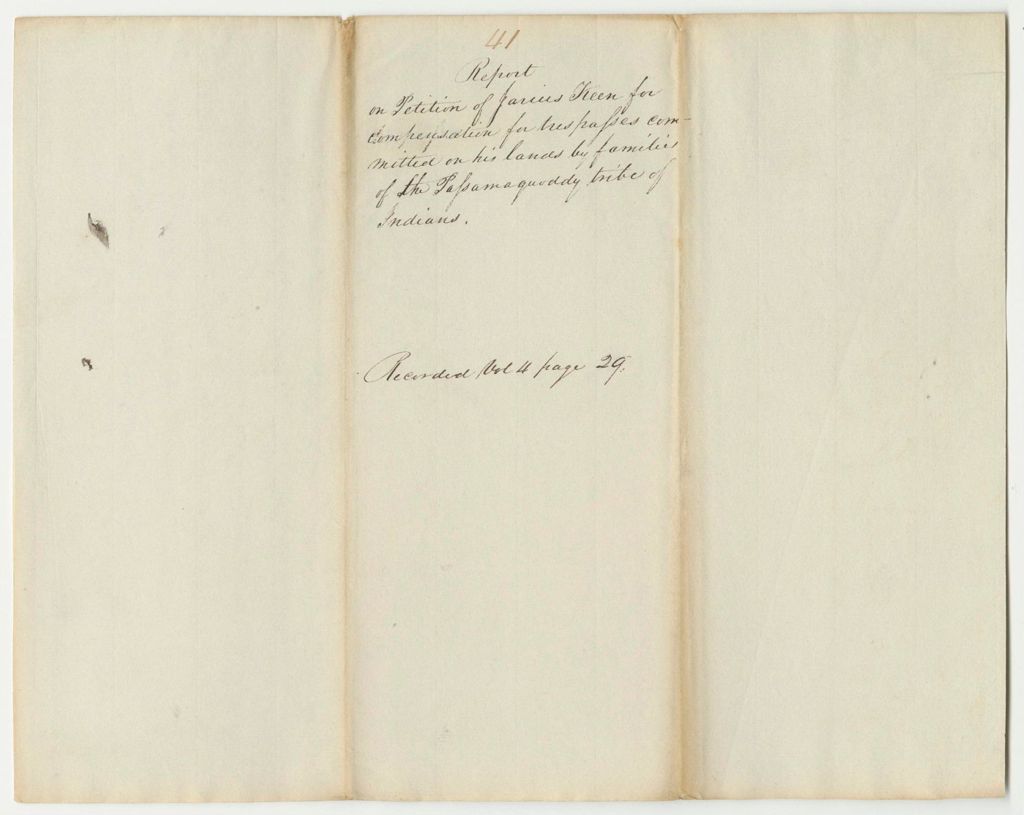 41
Report
on Petition of Jarius Keen for
compensation for trespasses com-
mitted on his lands by families
of the Passamaquoddy tribe of
Indians.
Recorded Vol 4 page 29.